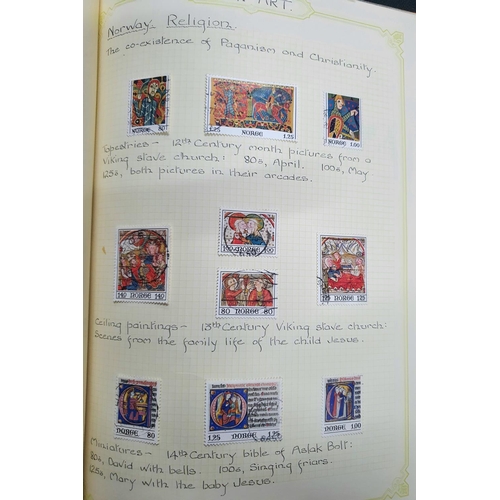 ART.
Norway- Religion.
The co-existence of Paganism and Christianity.
NORGE 80
1.25 NORGE 1.25
NORGE 1.00
Tapestries - 12th Century month pictures from a
Viking stave church: 80s, April. 100s, May
125s, both pictures in their arcades.
100 NORGE 100
140 NORGE 140
80 NORGE 80
125 NORGE 125
Ceiling paintings - 13th Century Viking stave church:
Scenes from the family life of the child Jesus.
NORGE 80
NORGE 1.25
NORGE 1.00
Miniatures - 14th Century bible of Aslak Bolt:
80s, David with bells. 100s, Singing friars.
125s, Mary with the baby Jesus.